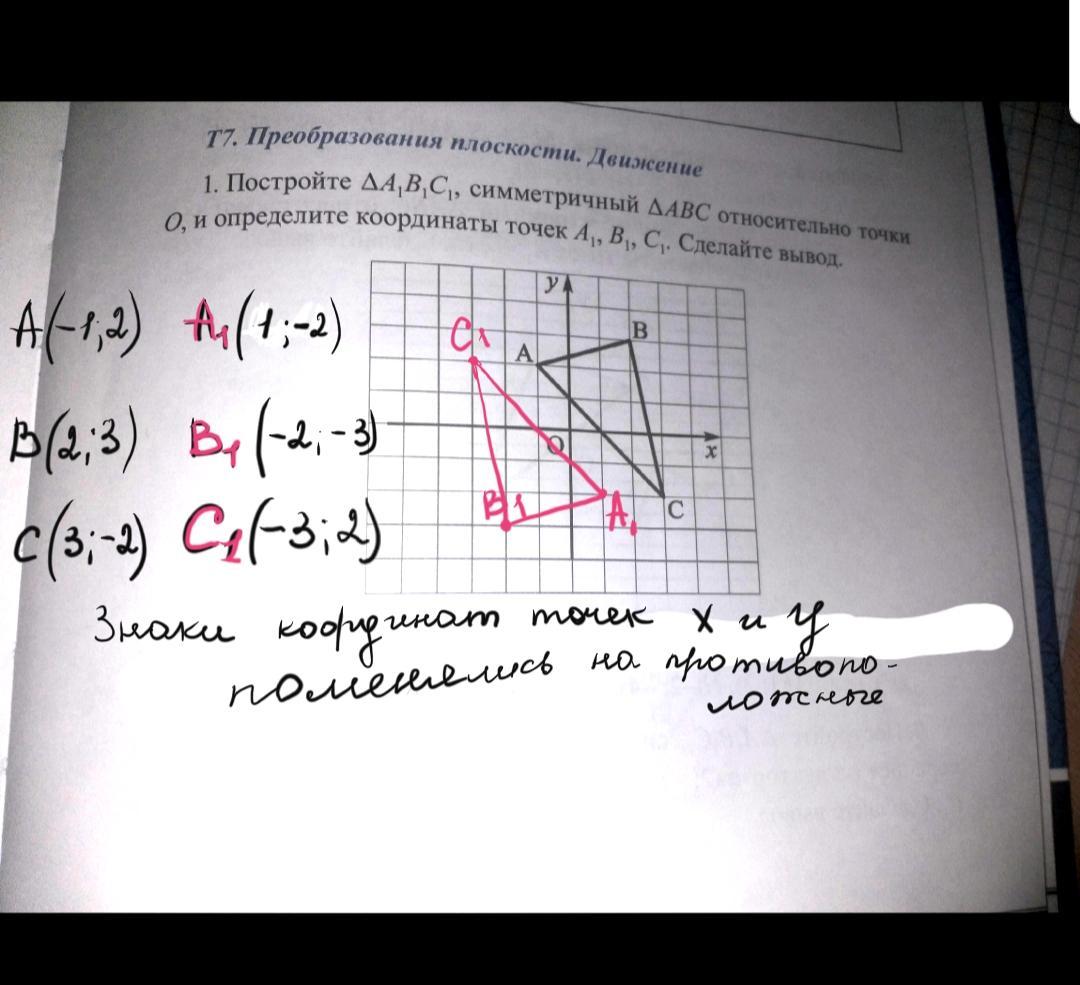 Т7. Преобразования плоскости. Движение
1. Постройте ΔA₁B₁C₁, симметричный ΔABC относительно точки
O, и определите координаты точек A₁, B₁, C₁. Сделайте вывод.
y
B
C₁
A
O
x
B1
A₁
C
A(-1;2) A₁(1;-2)
B(2;3) B₁(-2;-3)
C(3;-2) C₁(-3;2)
Знаки координат точек x и y
поменялись на противопо-
ложные